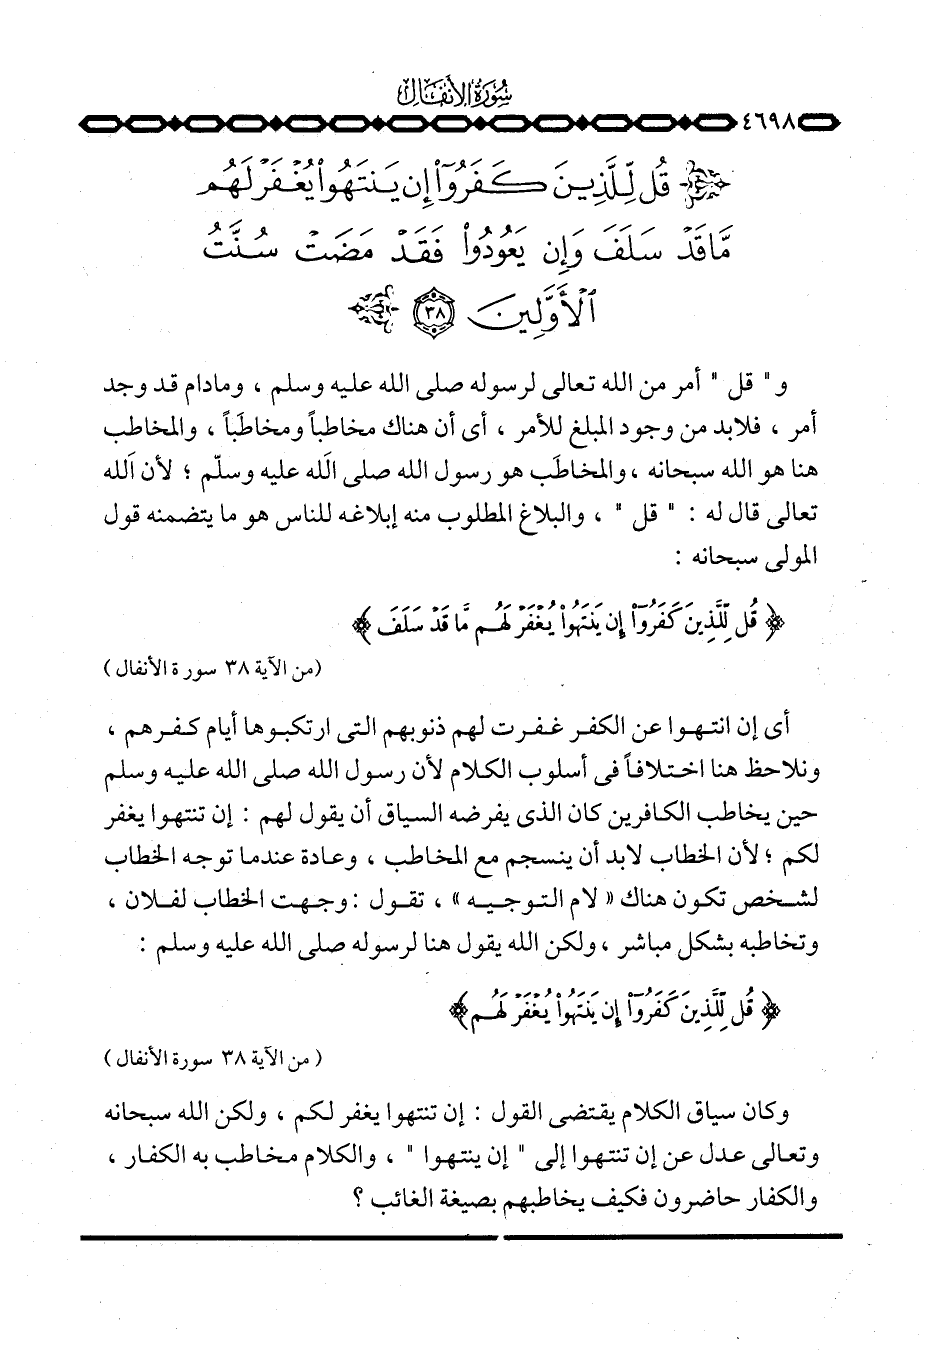 سورة الأنفال
٤٦٩٨
﴿ قُل لِّلَّذِينَ كَفَرُوٓا۟ إِن يَنتَهُوا۟ يُغْفَرْ لَهُم
مَّا قَدْ سَلَفَ وَإِن يَعُودُوا۟ فَقَدْ مَضَتْ سُنَّتُ
ٱلْأَوَّلِينَ ٣٨ ﴾
و " قل " أمر من الله تعالى لرسوله صلى الله عليه وسلم ، ومادام قد وجد
أمر ، فلابد من وجود المبلغ للأمر ، أى أن هناك مخاطباً ومخاطَباً ، والمخاطب
هنا هو الله سبحانه ، والمخاطَب هو رسول الله صلى الله عليه وسلّم ؛ لأن الله
تعالى قال له : " قل " ، والبلاغ المطلوب منه إبلاغه للناس هو ما يتضمنه قول
المولى سبحانه :
﴿ قُل لِّلَّذِينَ كَفَرُوٓا۟ إِن يَنتَهُوا۟ يُغْفَرْ لَهُم مَّا قَدْ سَلَفَ ﴾
(من الآية ٣٨ سورة الأنفال)
أى إن انتهوا عن الكفر غفرت لهم ذنوبهم التى ارتكبوها أيام كفرهم ،
ونلاحظ هنا اختلافاً فى أسلوب الكلام لأن رسول الله صلى الله عليه وسلم
حين يخاطب الكافرين كان الذى يفرضه السياق أن يقول لهم : إن تنتهوا يغفر
لكم ؛ لأن الخطاب لابد أن ينسجم مع المخاطب ، وعادة عندما توجه الخطاب
لشخص تكون هناك « لام التوجيه » ، تقول : وجهت الخطاب لفلان ،
وتخاطبه بشكل مباشر ، ولكن الله يقول هنا لرسوله صلى الله عليه وسلم :
﴿ قُل لِّلَّذِينَ كَفَرُوٓا۟ إِن يَنتَهُوا۟ يُغْفَرْ لَهُم ﴾
( من الآية ٣٨ سورة الأنفال)
وكان سياق الكلام يقتضى القول : إن تنتهوا يغفر لكم ، ولكن الله سبحانه
وتعالى عدل عن إن تنتهوا إلى " إن ينتهوا " ، والكلام مخاطب به الكفار ،
والكفار حاضرون فكيف يخاطبهم بصيغة الغائب ؟